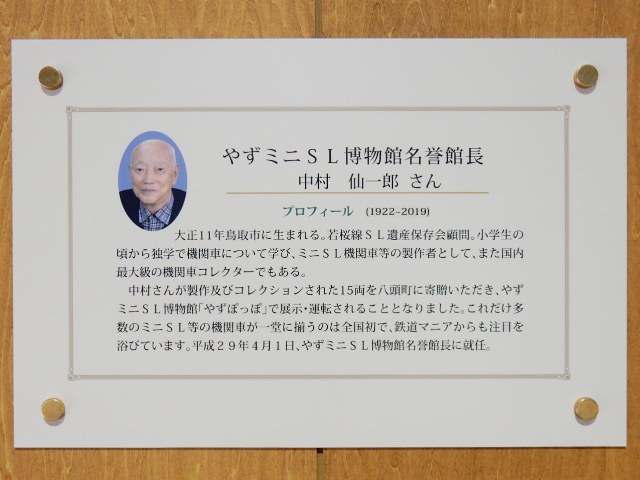 やずミニSL博物館名誉館長
中村 仙一郎 さん
プロフィール (1922-2019)
大正11年鳥取市に生まれる。若桜線SL遺産保存会顧問。小学生の
頃から独学で機関車について学び、ミニSL機関車等の製作者として、また国内
最大級の機関車コレクターでもある。
中村さんが製作及びコレクションされた15両を八頭町に寄贈いただき、やず
ミニSL博物館「やずぽっぽ」で展示・運転されることとなりました。これだけ多
数のミニSL等の機関車が一堂に揃うのは全国初で、鉄道マニアからも注目を
浴びています。平成29年4月1日、やずミニSL博物館名誉館長に就任。